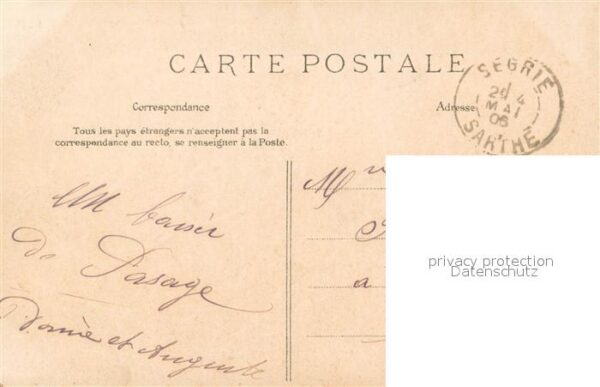 CARTE POSTALE
SEGRIE
MAI
06
SARTHE
Correspondance
Adresse
Tous les pays étrangers n'acceptent pas la
correspondance au recto, se renseigner à la Poste.
Un baiser
de Pasage
et Auguste
M
a
privacy protection
Datenschutz